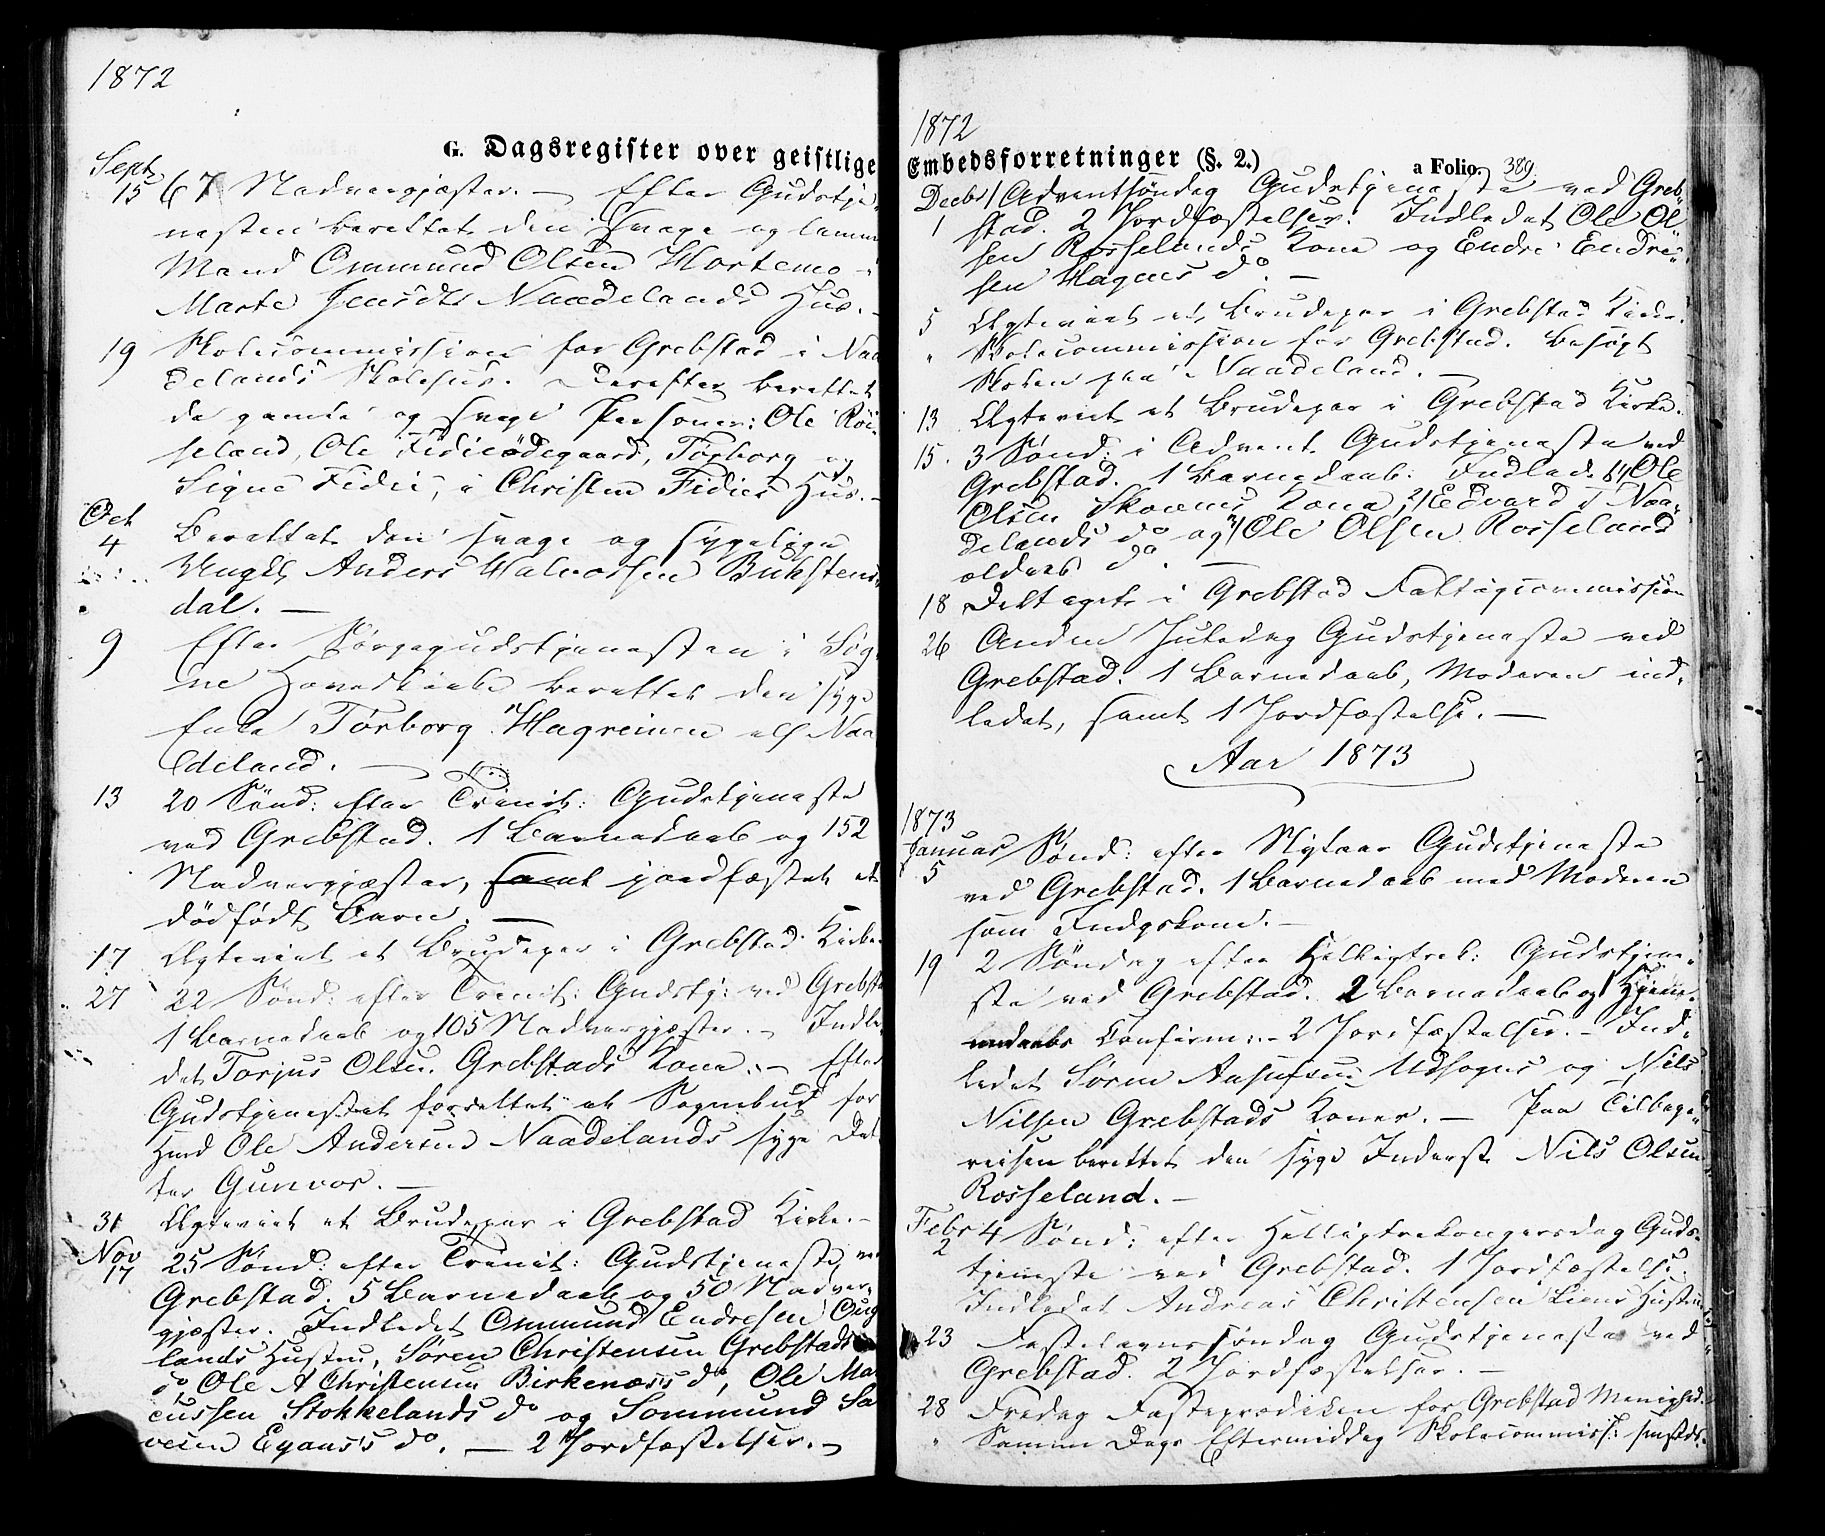 1872
G. Dagsregister over geistlige
Sept
15 67 Nadvergjæster. — Efter Gudstje-
nesten berettet den svage og lamme
Mand Ommund Olsen Hortemo i
Marte Jensdtr Naadelands Hus. -
19 Skolecommission for Grebstad i Naa
delands Skolehus. Derefter berettet
de gamle og svage Personer: Ole Ros-
seland, Ole Fidieødegaard, Tørborg og
Signe Fidie, i Christen Fidies Hus. -
Oct
4 Berettet den svage og sygelige
Ungk Anders Halvorsen Bukstens-
dal. —
9 Efter Sørgegudstjenesten i Søg-
ne Hovedkirke berettet den syge
Enke Tørborg Hagreinen af Naa
deland. —
13 20 Sønd: efter Trinit: Gudstjeneste
ved Grebstad. 1 Barnedaab og 152
Nadvergjæster, samt jordfæstet et
dødfødt Barn. —
17 Ægteviet et Brudepar i Grebstad Kirke
27 22 Sønd: efter Trinit: Gudstj: ved Grebsta
1 Barnedaab og 105 Nadvergjæster. — Indle-
det Torjus Olsen Grebstads Kone. — Efter
Gudstjenesten forrettet et Sognebud for
Hmd Ole Andersens Naadelands syge Dat
ter Gunvor. —
31 Ægteviet et Brudepar i Grebstad Kirke. -
Nov
17 25 Sønd: efter Trinit: Gudstjeneste ved
Grebstad. 5 Barnedaab og 50 Nadver-
gjæster. Indledet Ommund Endresen Aug
lands Hustru, Søren Christensen Grebstads
do, Ole A Christensen Birkenæss do, Ole Mar
cussen Stokkelands do og Sommund Sa
vesen Egaas's do. — 2 Jordfæstelser. -
1872
Embedsforretninger (§. 2.) a Folio. 389
Decbr 1 Adventsøndag Gudstjeneste ved Greb-
1 stad. 2 Jordfæstelser. Indledet Ole Ol-
sen Rosselands Kone og Endre Endre-
sen Hagnes do. —
5 Ægteviet et Brudepar i Grebstad Kirke.
" Skolecommission for Grebstad. Besøgt
Skolen paa Naadeland. —
13 Ægteviet et Brudepar i Grebstad Kirke.
15. 3 Sønd: i Advent Gudstjeneste ved
Grebstad. 1 Barnedaab. Indled. 1) Ole
Olsen Skovens Kone, 2) Edvard T Naa-
delands do og 3) Ole Olsen Rosseland
ældres do. —
18 Deltaget i Grebstad Fattigcommission
26 Anden Juledag Gudstjeneste ved
Grebstad. 1 Barnedaab, Moderen ind-
ledet, samt 1 Jordfæstelse. —
Aar 1873
1873
Januar Sønd: efter Nytaar Gudstjeneste
5 ved Grebstad. 1 Barnedaab med Moderen
som Indgskone. —
19 2 Søndag efter Helligtrek: Gudstjene-
ste ved Grebstad. 2 Barnedaab og 1 Hjemme-
daabs Confirm: - 2 Jordfæstelser. - Ind-
ledet Søren Udsogns og Nils
Nilsen Grebstads Koner. — Paa Tilbage-
reisen berettet den syge Inderst Nils Olsen
Rosseland. —
Febr 4 Sønd: efter Helligtrekongersdag Guds-
2 tjeneste ved Grebstad. 1 Jordfæstelse.
Indledet Andreas Christensen Liens Hustru
23 Fastelavnssøndag Gudstjeneste ved
Grebstad. 2 Jordfæstelser. —
28 Fredag Fasteprædiken for Grebstad Menighed.
" Samme Dags Eftermiddag Skolecommiss: smstds.